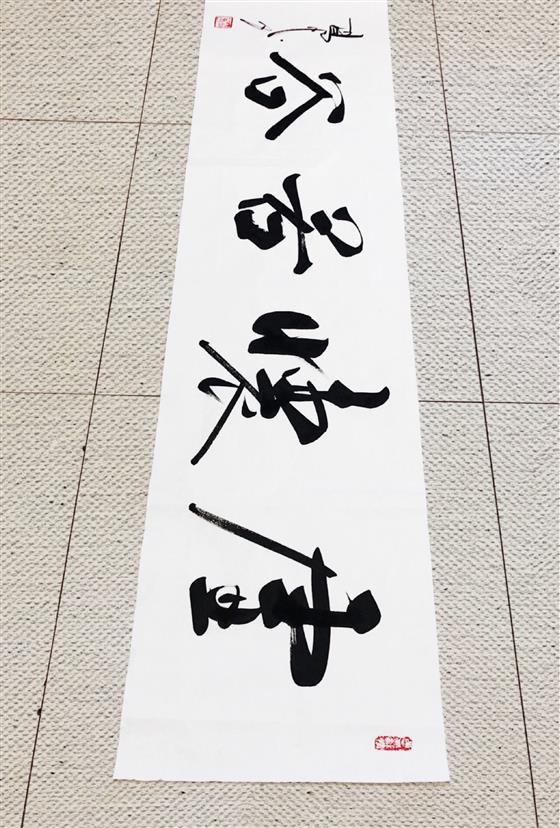 虚懷若谷